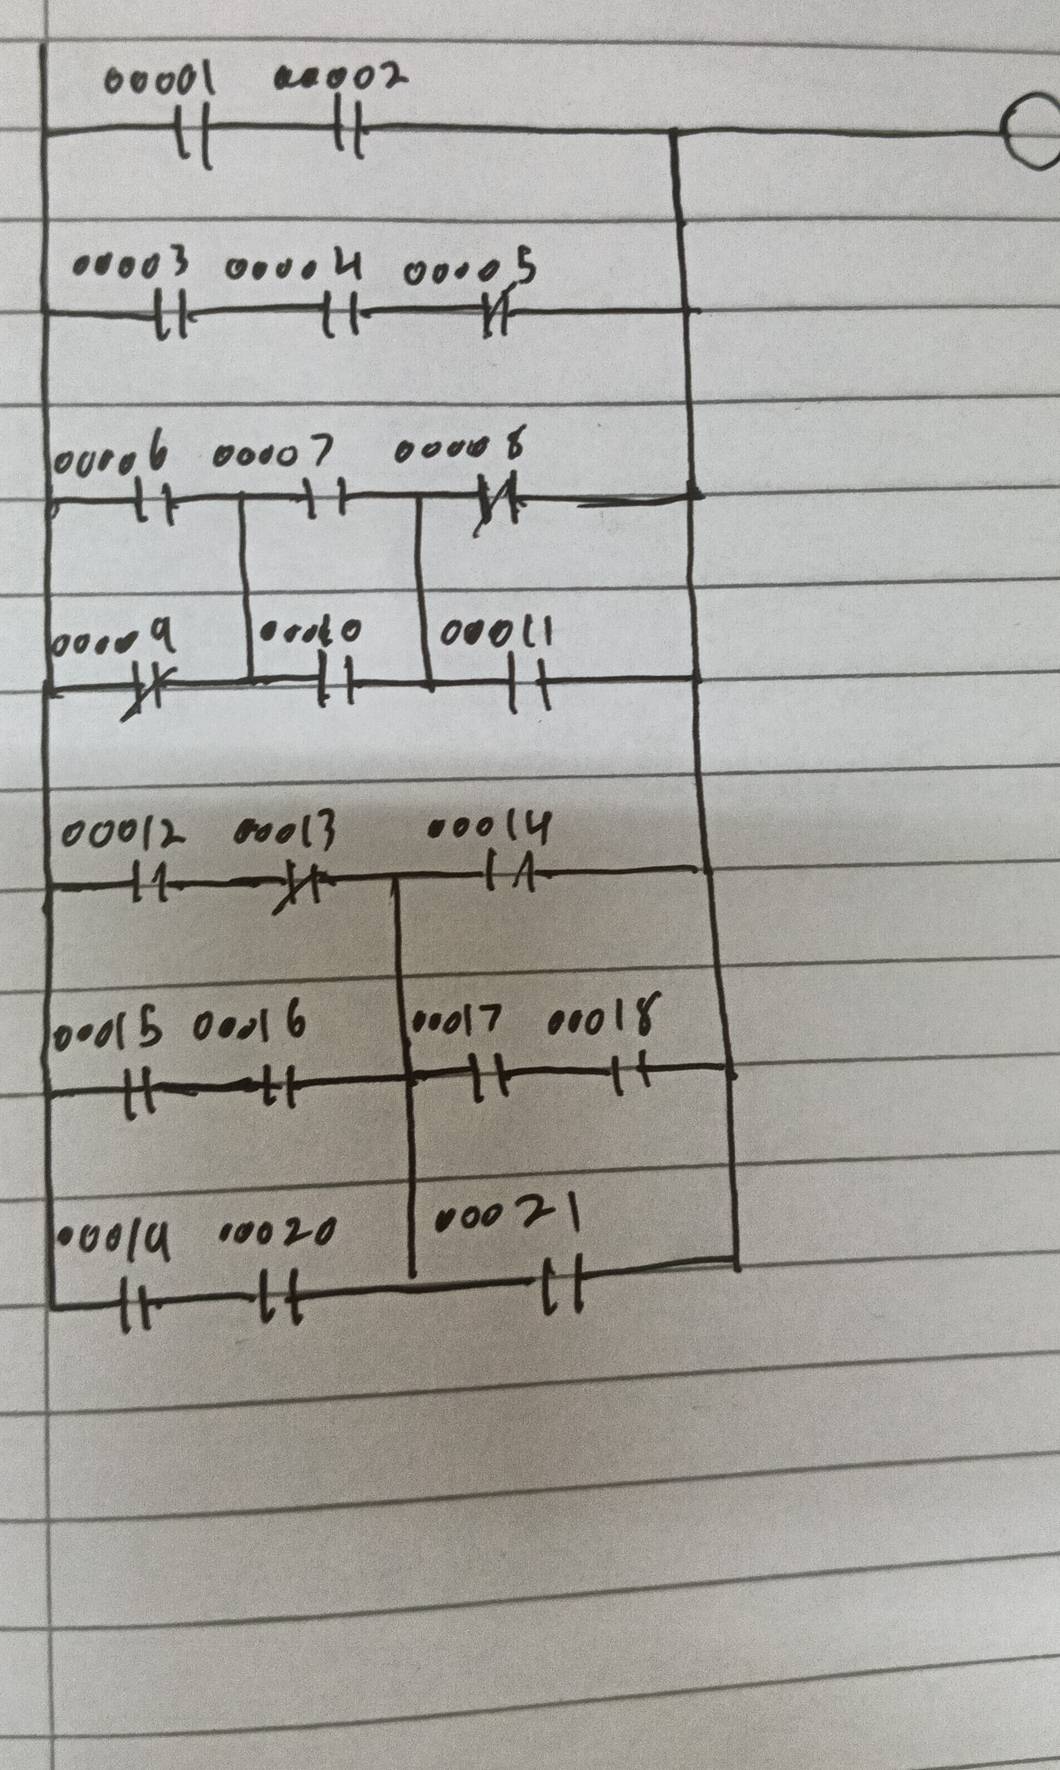 00001 00002
00003 00004 00005
00006 00007 00008
00009 00010 00011
00012 00013 00014
00015 00016 00017 00018
00019 00020 00021